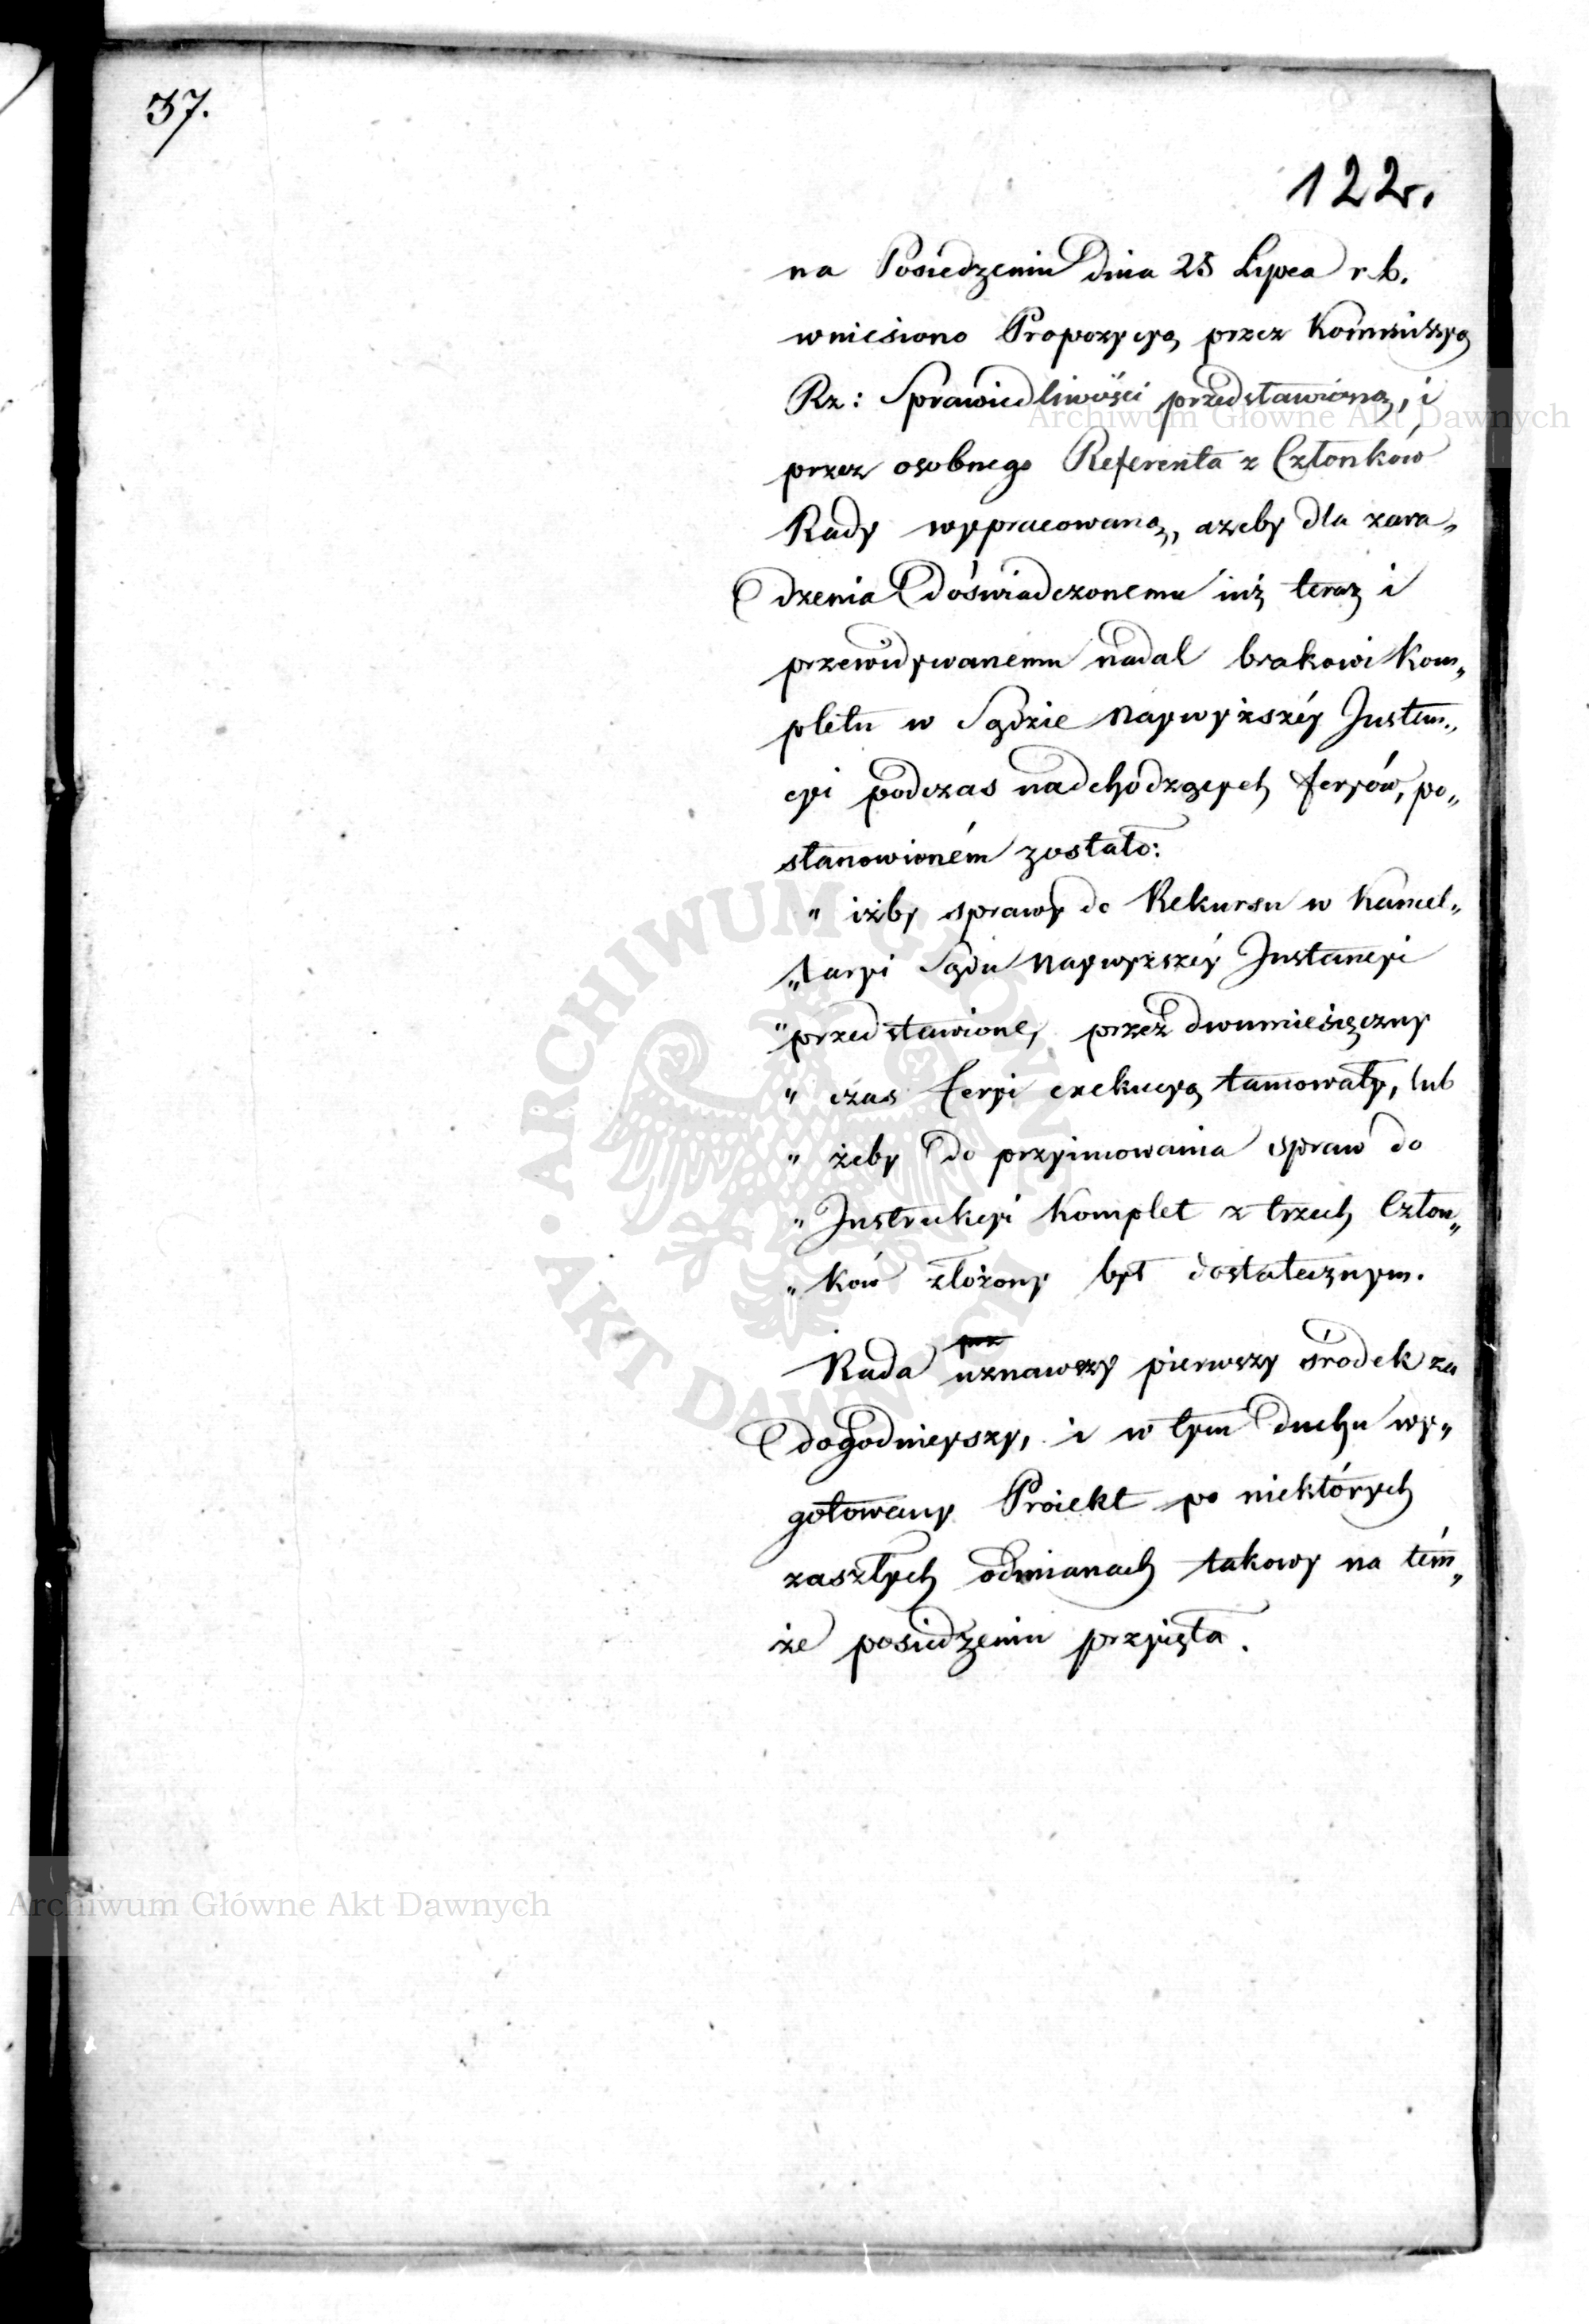 37.
122.
na Posiedzeniu dnia 25 Lipca r. b.
wniesiono Propozycyą przez Kommissyą
Rz: Sprawiedliwości przedstawioną, i
przez osobnego Referenta z Członków
Rady wypracowaną, ażeby dla zara„
dzenia doświadczonemu iuż teraz i
przewidywanemu nadal brakowi Kom„
pletu w Sądzie Naywyższéy Instan„
cyi podczas nadchodzących feryów, po„
stanowioném zostało:
„ iżby sprawy do Rekursu w Kancel„
„laryi Sądu Naywyższéy Instancyi
„przedstawione, przez dwumiesięczny
„ czas feryi exekucyą tamowały, lub
„ żeby do przyimowania spraw do
„Instrukcyi Komplet z trzech Człon„
„ków złożony był dostatecznym.
Rada uznawszy pierwszy środek za
dogodnieyszy, i w tym duchu wy„
gotowany Proiekt po niektórych
zaszłych odmianach takowy na tém„
że posiedzeniu przyięła.
Archiwum Główne Akt Dawnych
Archiwum Główne Akt Dawnych
ARCHIWUM GŁÓWNE AKT DAWNYCH